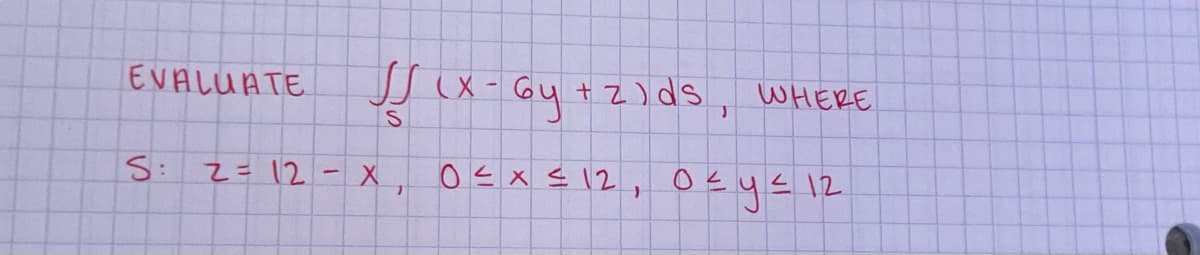 EVALUATE ∬ (x - 6y + z) ds, WHERE
S
S: z = 12 - x, 0 ≤ x ≤ 12, 0 ≤ y ≤ 12